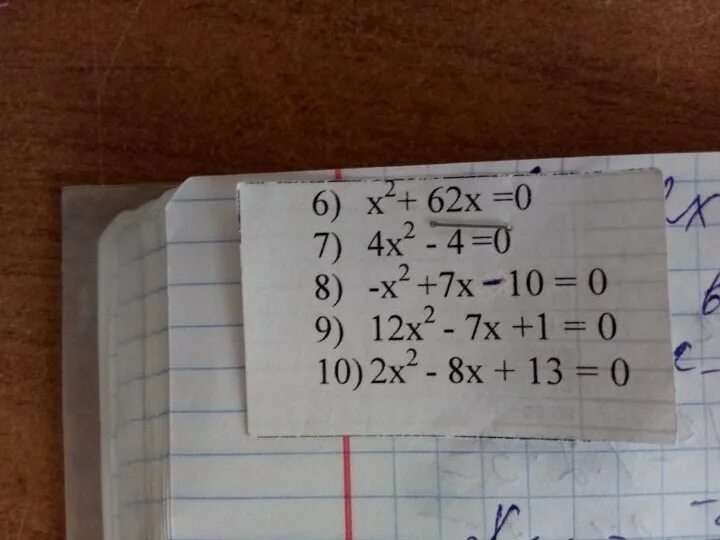 6) x²+ 62x =0
7) 4x² - 4 =0
8) -x² +7x - 10 = 0
9) 12x² - 7x +1 = 0
10) 2x² - 8x + 13 = 0